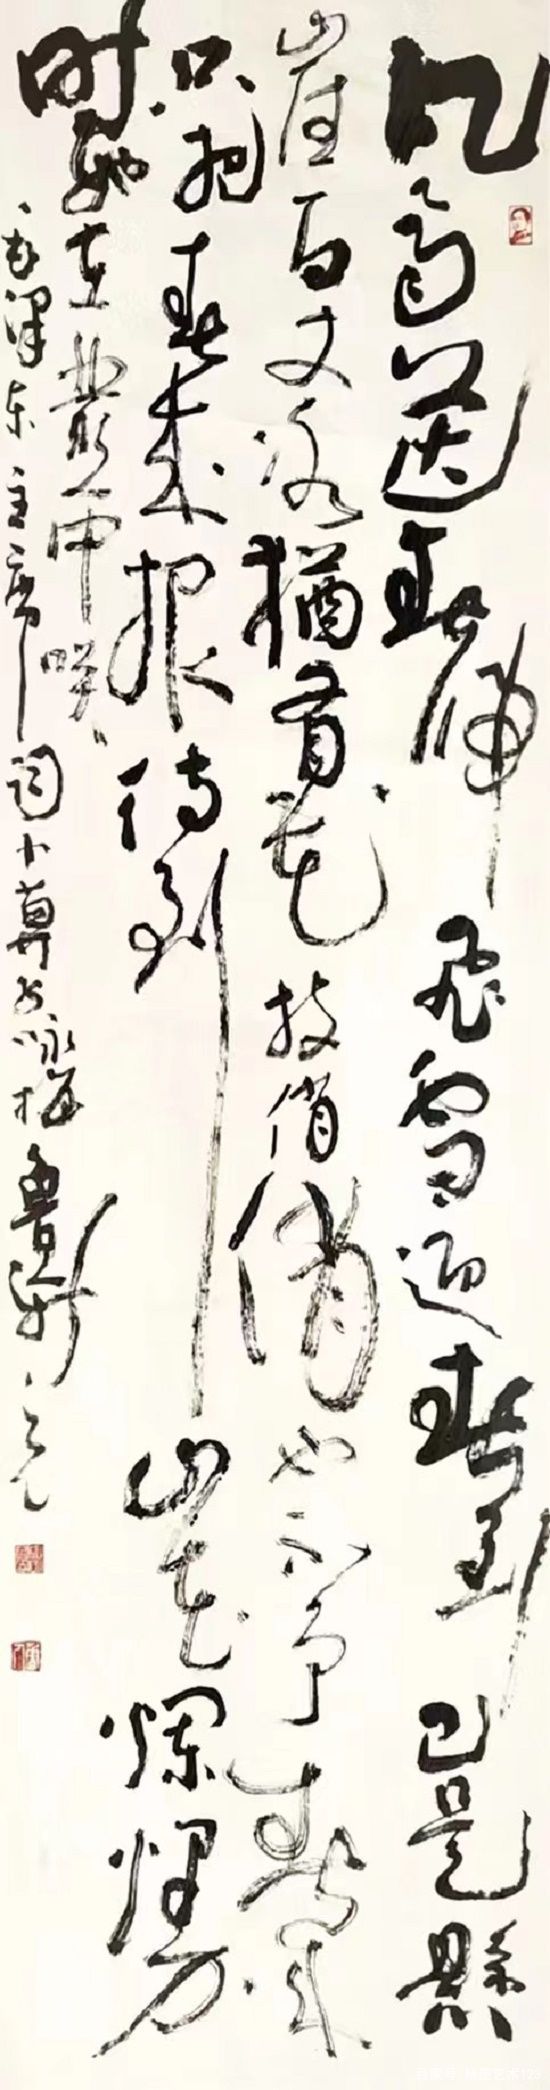 风雨送春归飛雪迎春到已是懸
崖百丈冰猶有花枝俏俏也不争春
只把春来报待到山花爛熳
時她在叢中咲
毛泽东主席词卜算子咏梅